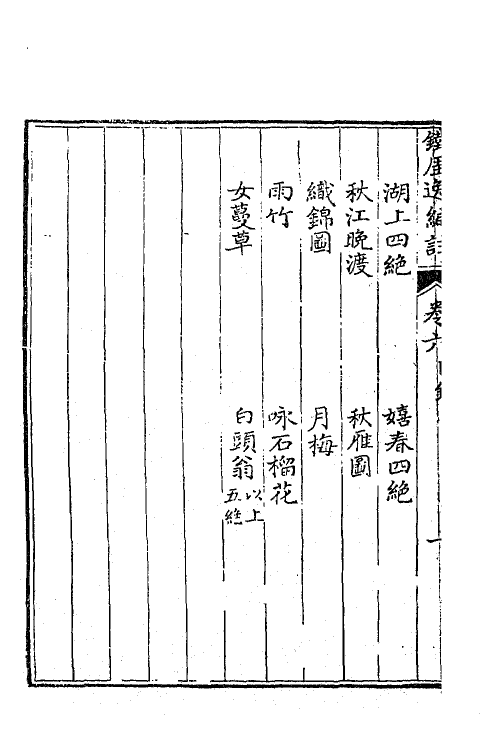 鐵厓逸編註 卷六 目錄 一
湖上四絕 嬉春四絕
秋江晚渡 秋雁圖
織錦圖 月梅
雨竹 咏石榴花
女蔓草 白頭翁 以上五絕